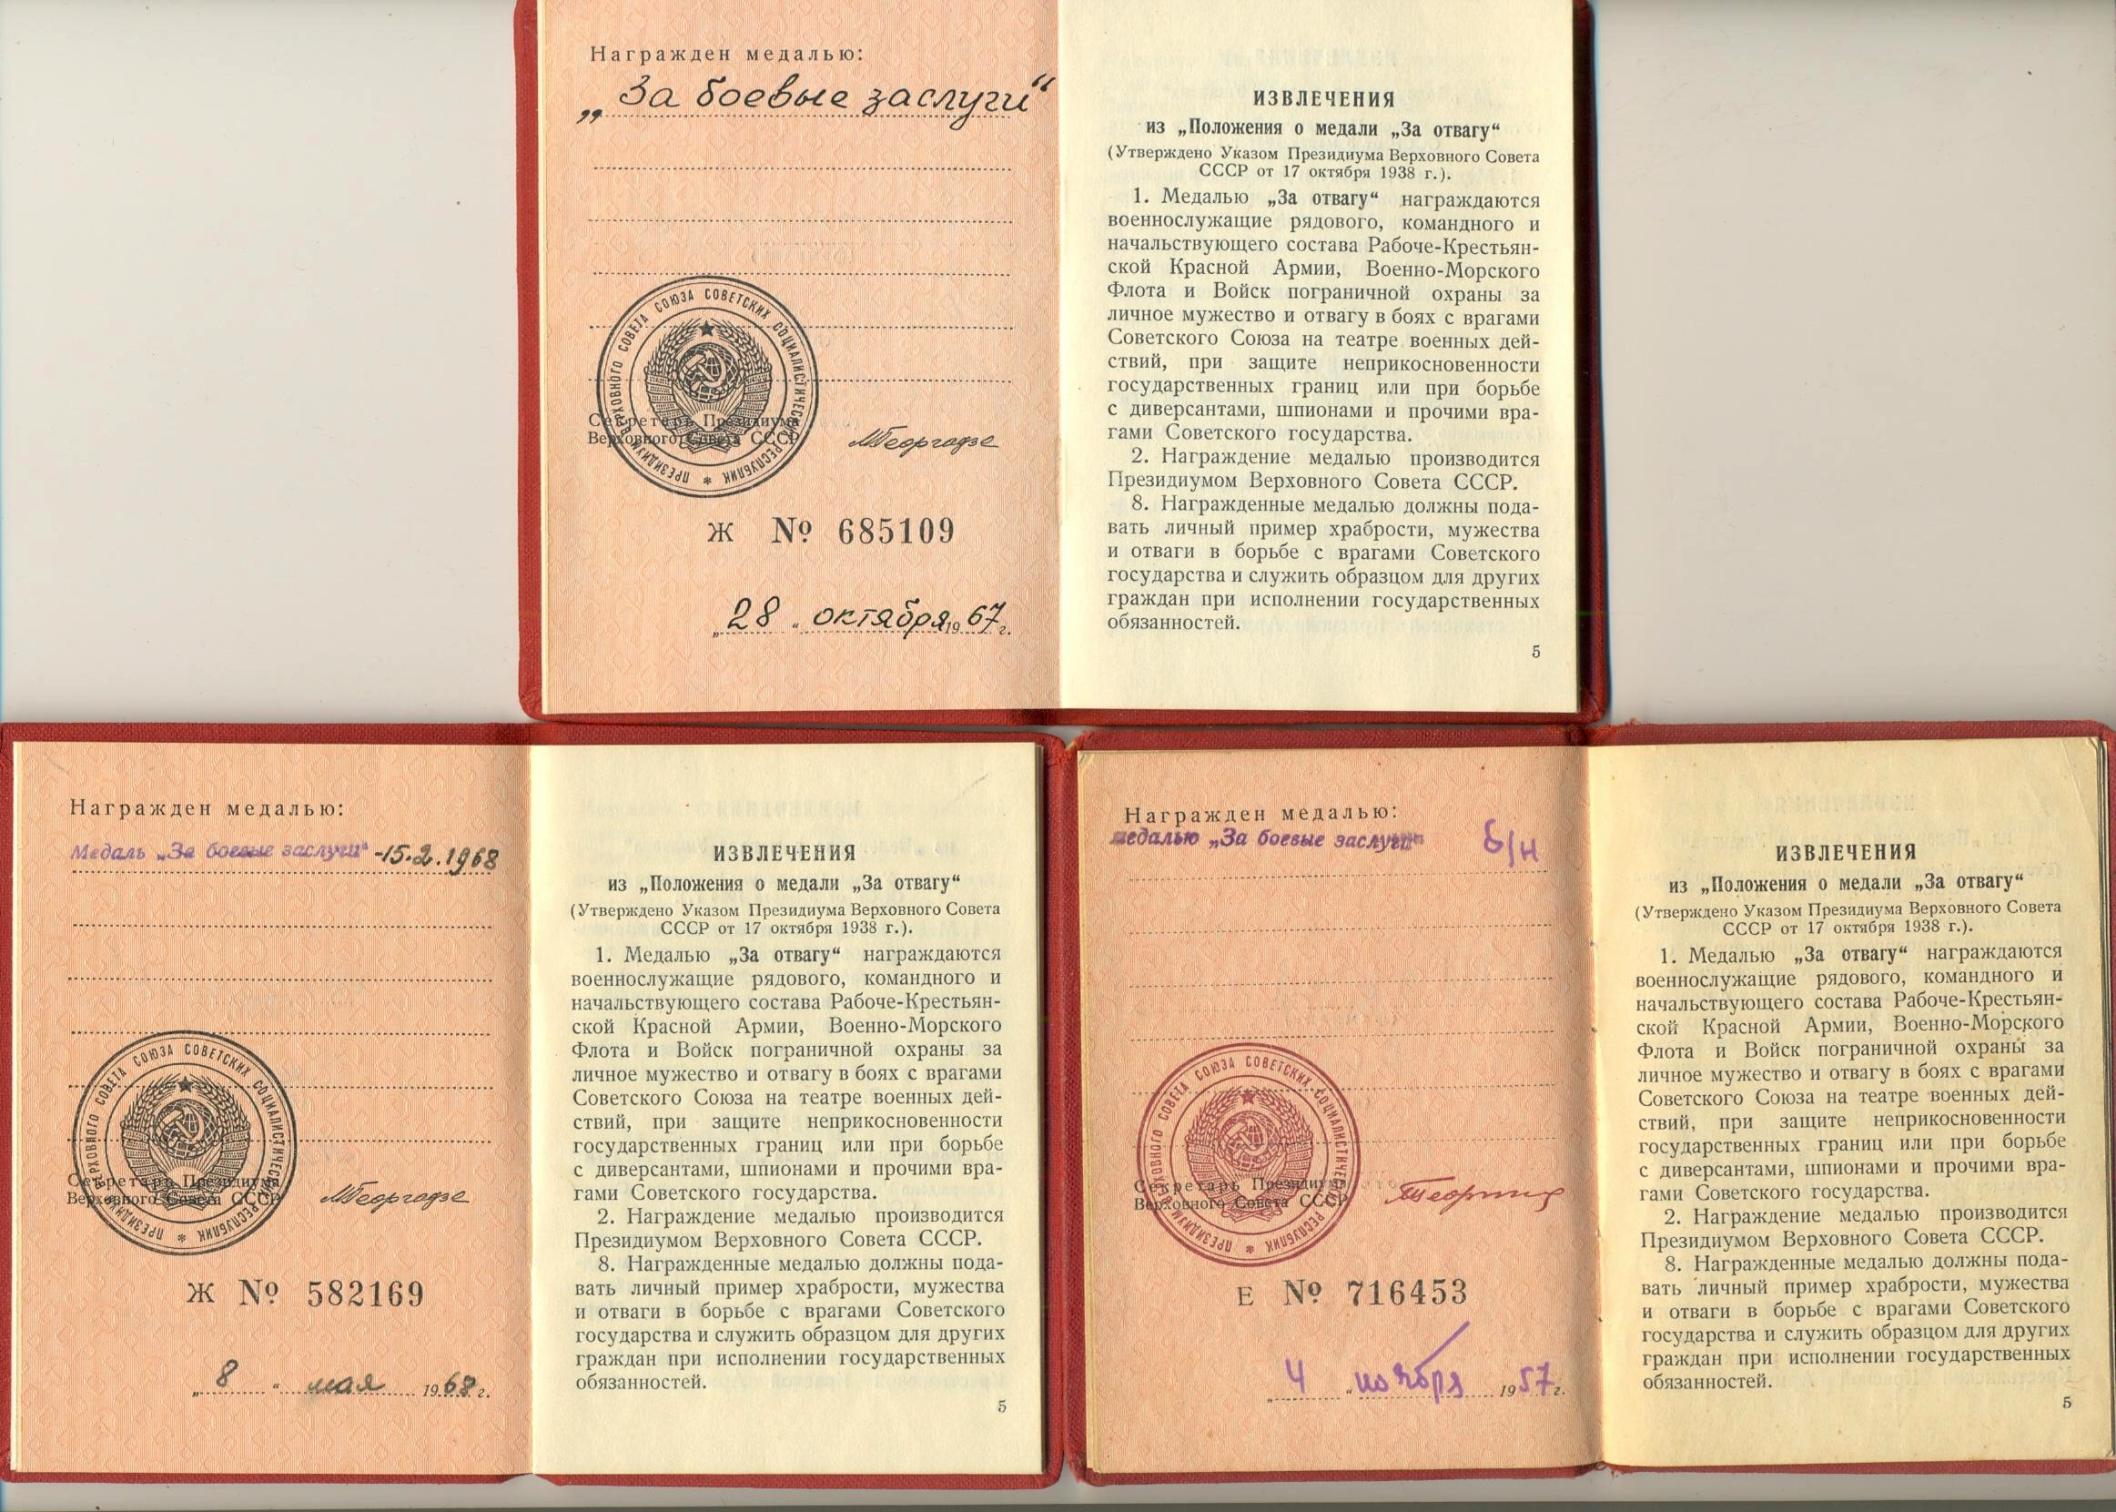 Награжден медалью:
„За боевые заслуги“
ПРЕЗИДИУМ ВЕРХОВНОГО СОВЕТА СОЮЗА СОВЕТСКИХ СОЦИАЛИСТИЧЕСКИХ РЕСПУБЛИК *
Секретарь Президиума
Верховного Совета СССР
МГеоргадзе
Ж № 685109
„28“ октября 1967 г.
ИЗВЛЕЧЕНИЯ
из „Положения о медали „За отвагу“
(Утверждено Указом Президиума Верховного Совета
СССР от 17 октября 1938 г.).
1. Медалью „За отвагу“ награждаются
военнослужащие рядового, командного и
начальствующего состава Рабоче-Крестьян-
ской Красной Армии, Военно-Морского
Флота и Войск пограничной охраны за
личное мужество и отвагу в боях с врагами
Советского Союза на театре военных дей-
ствий, при защите неприкосновенности
государственных границ или при борьбе
с диверсантами, шпионами и прочими вра-
гами Советского государства.
2. Награждение медалью производится
Президиумом Верховного Совета СССР.
8. Награжденные медалью должны пода-
вать личный пример храбрости, мужества
и отваги в борьбе с врагами Советского
государства и служить образцом для других
граждан при исполнении государственных
обязанностей.
5
Награжден медалью:
Медаль „За боевые заслуги“ -15.2.1968
ПРЕЗИДИУМ ВЕРХОВНОГО СОВЕТА СОЮЗА СОВЕТСКИХ СОЦИАЛИСТИЧЕСКИХ РЕСПУБЛИК *
Секретарь Президиума
Верховного Совета СССР
МГеоргадзе
Ж № 582169
„8“ мая 1968 г.
ИЗВЛЕЧЕНИЯ
из „Положения о медали „За отвагу“
(Утверждено Указом Президиума Верховного Совета
СССР от 17 октября 1938 г.).
1. Медалью „За отвагу“ награждаются
военнослужащие рядового, командного и
начальствующего состава Рабоче-Крестьян-
ской Красной Армии, Военно-Морского
Флота и Войск пограничной охраны за
личное мужество и отвагу в боях с врагами
Советского Союза на театре военных дей-
ствий, при защите неприкосновенности
государственных границ или при борьбе
с диверсантами, шпионами и прочими вра-
гами Советского государства.
2. Награждение медалью производится
Президиумом Верховного Совета СССР.
8. Награжденные медалью должны пода-
вать личный пример храбрости, мужества
и отваги в борьбе с врагами Советского
государства и служить образцом для других
граждан при исполнении государственных
обязанностей.
5
Награжден медалью:
медалью „За боевые заслуги“ б/н
ПРЕЗИДИУМ ВЕРХОВНОГО СОВЕТА СОЮЗА СОВЕТСКИХ СОЦИАЛИСТИЧЕСКИХ РЕСПУБЛИК *
Секретарь Президиума
Верховного Совета СССР
Е № 716453
„4“ ноября 1957 г.
ИЗВЛЕЧЕНИЯ
из „Положения о медали „За отвагу“
(Утверждено Указом Президиума Верховного Совета
СССР от 17 октября 1938 г.).
1. Медалью „За отвагу“ награждаются
военнослужащие рядового, командного и
начальствующего состава Рабоче-Крестьян-
ской Красной Армии, Военно-Морского
Флота и Войск пограничной охраны за
личное мужество и отвагу в боях с врагами
Советского Союза на театре военных дей-
ствий, при защите неприкосновенности
государственных границ или при борьбе
с диверсантами, шпионами и прочими вра-
гами Советского государства.
2. Награждение медалью производится
Президиумом Верховного Совета СССР.
8. Награжденные медалью должны пода-
вать личный пример храбрости, мужества
и отваги в борьбе с врагами Советского
государства и служить образцом для других
граждан при исполнении государственных
обязанностей.
5